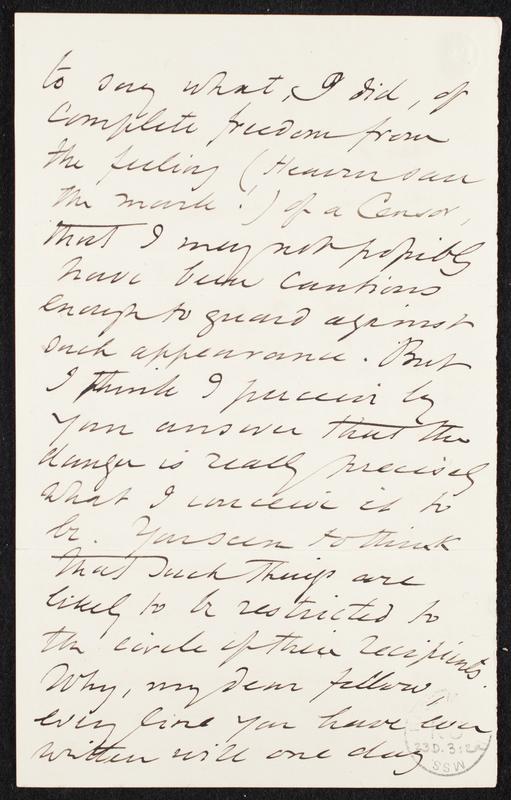 to say what, I did, of
complete freedom from
the feeling (Heaven save
the mark!) of a Censor,
that I may not possibly
have been cautious
enough to guard against
such appearance. But
I think I perceive by
your answer that the
danger is really precisely
what I conceive it to
be. You seem to think
that such things are
likely to be restricted to
the circle of their recipients.
Why, my dear fellow,
every line you have ever
written will one day